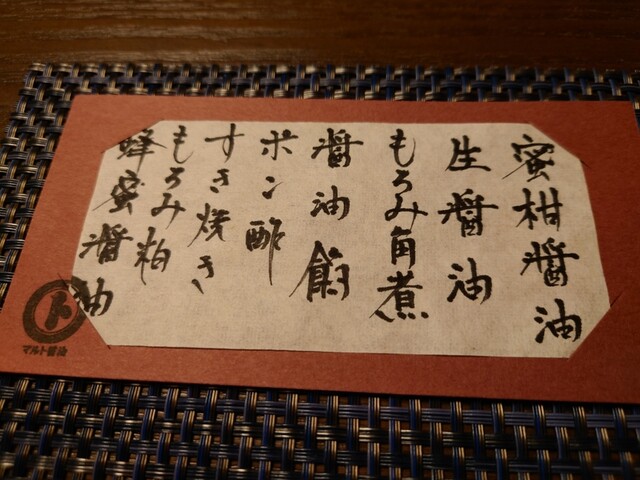 蜜柑醤油
生醤油
もろみ角煮
醤油餡
ポン酢
すき焼き
もろみ粕
蜂蜜醤油
ト
マルト醤油